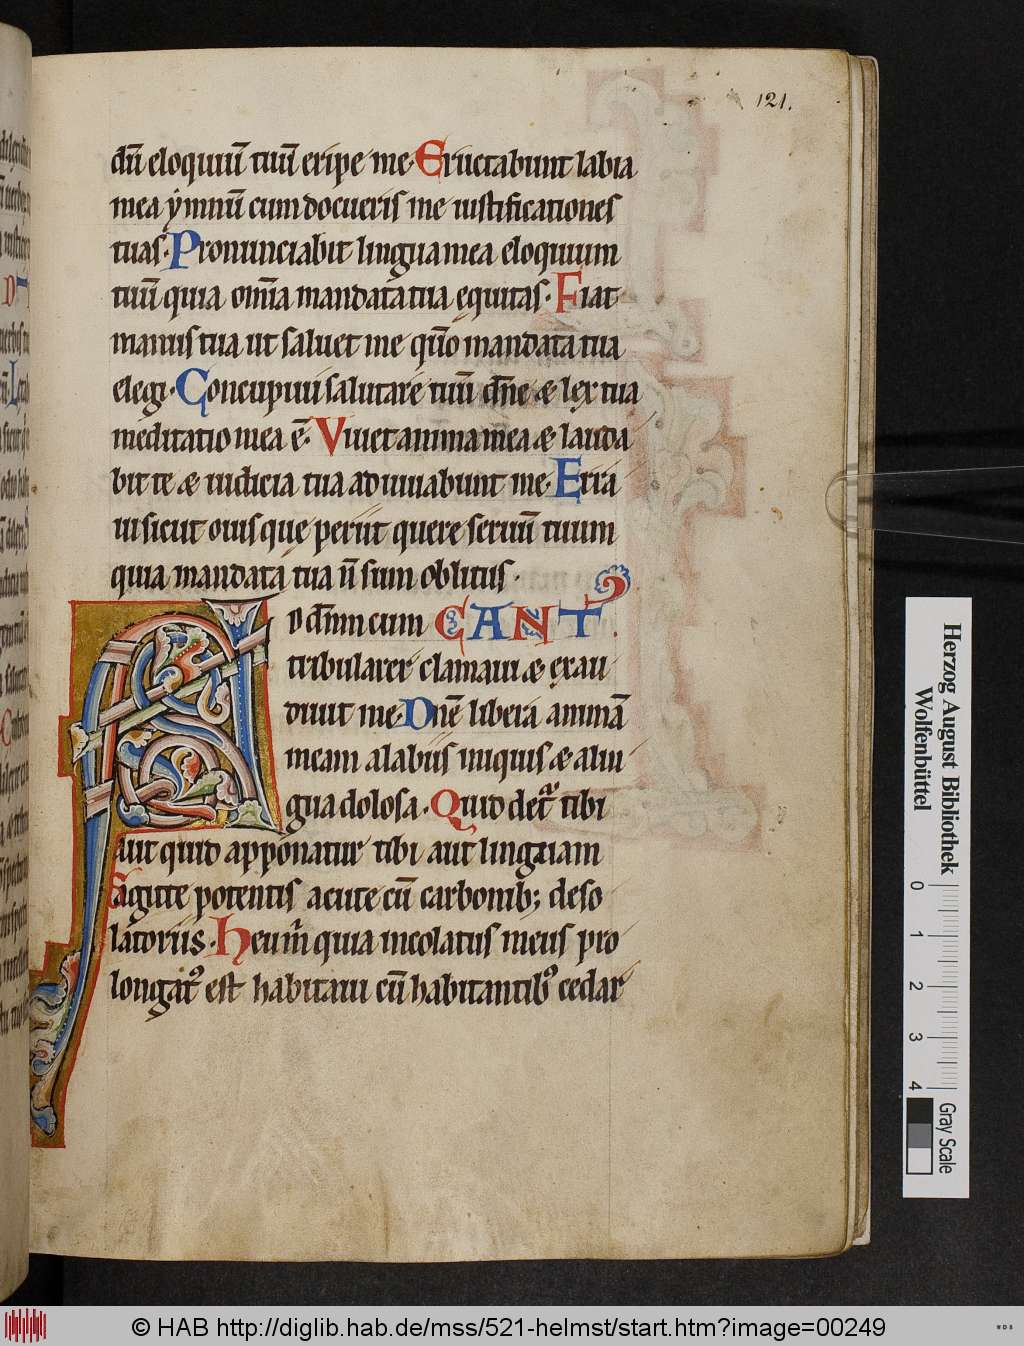 121.
dū eloquiū tuū eripe me · Eructabunt labia
mea ẏmnū cum docueris me iustificationes
tuas · Pronunciabit lingua mea eloquium
tuū quia om̄a mandata tua ęquitas · Fiat
manus tua ut saluet me qm̄o mandata tua
elegi · Concupiui salutare tuū dn̄e & lex tua
meditatio mea ē · Viuet anima mea & lauda
bit te & iudicia tua adiuuabunt me · Erra
ui sicut ouis que periit quere seruū tuum
quia mandata tua n̄ sum oblitus ·
A D dn̄m cum CANT
tribularer clamaui & exau
diuit me · Dn̄e libera animā
meam a labiis iniquis & a lin
gua dolosa · Quid det᷑ tibi
aut quid apponatur tibi aut linguam
Sagitte potentis acute cū carbonib; deso
latoriis · Heum̄ quia incolatus meus pro
longatꝰ est habitaui cū habitantibꝰ cedar
Herzog August Bibliothek
Wolfenbüttel
0 1 2 3 4
Gray Scale
© HAB http://diglib.hab.de/mss/521-helmst/start.htm?image=00249